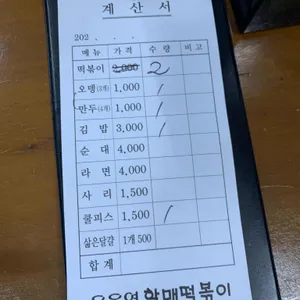 계 산 서
202 . . .
메뉴 가격 수량 비고
떡볶이 2,000 2
오뎅(3개) 1,000 1
만두(4개) 1,000 1
김 밥 3,000 1
순 대 4,000
라 면 4,000
사 리 1,500
쿨피스 1,500 1
삶은달걀 1개 500
합 계
할매떡볶이